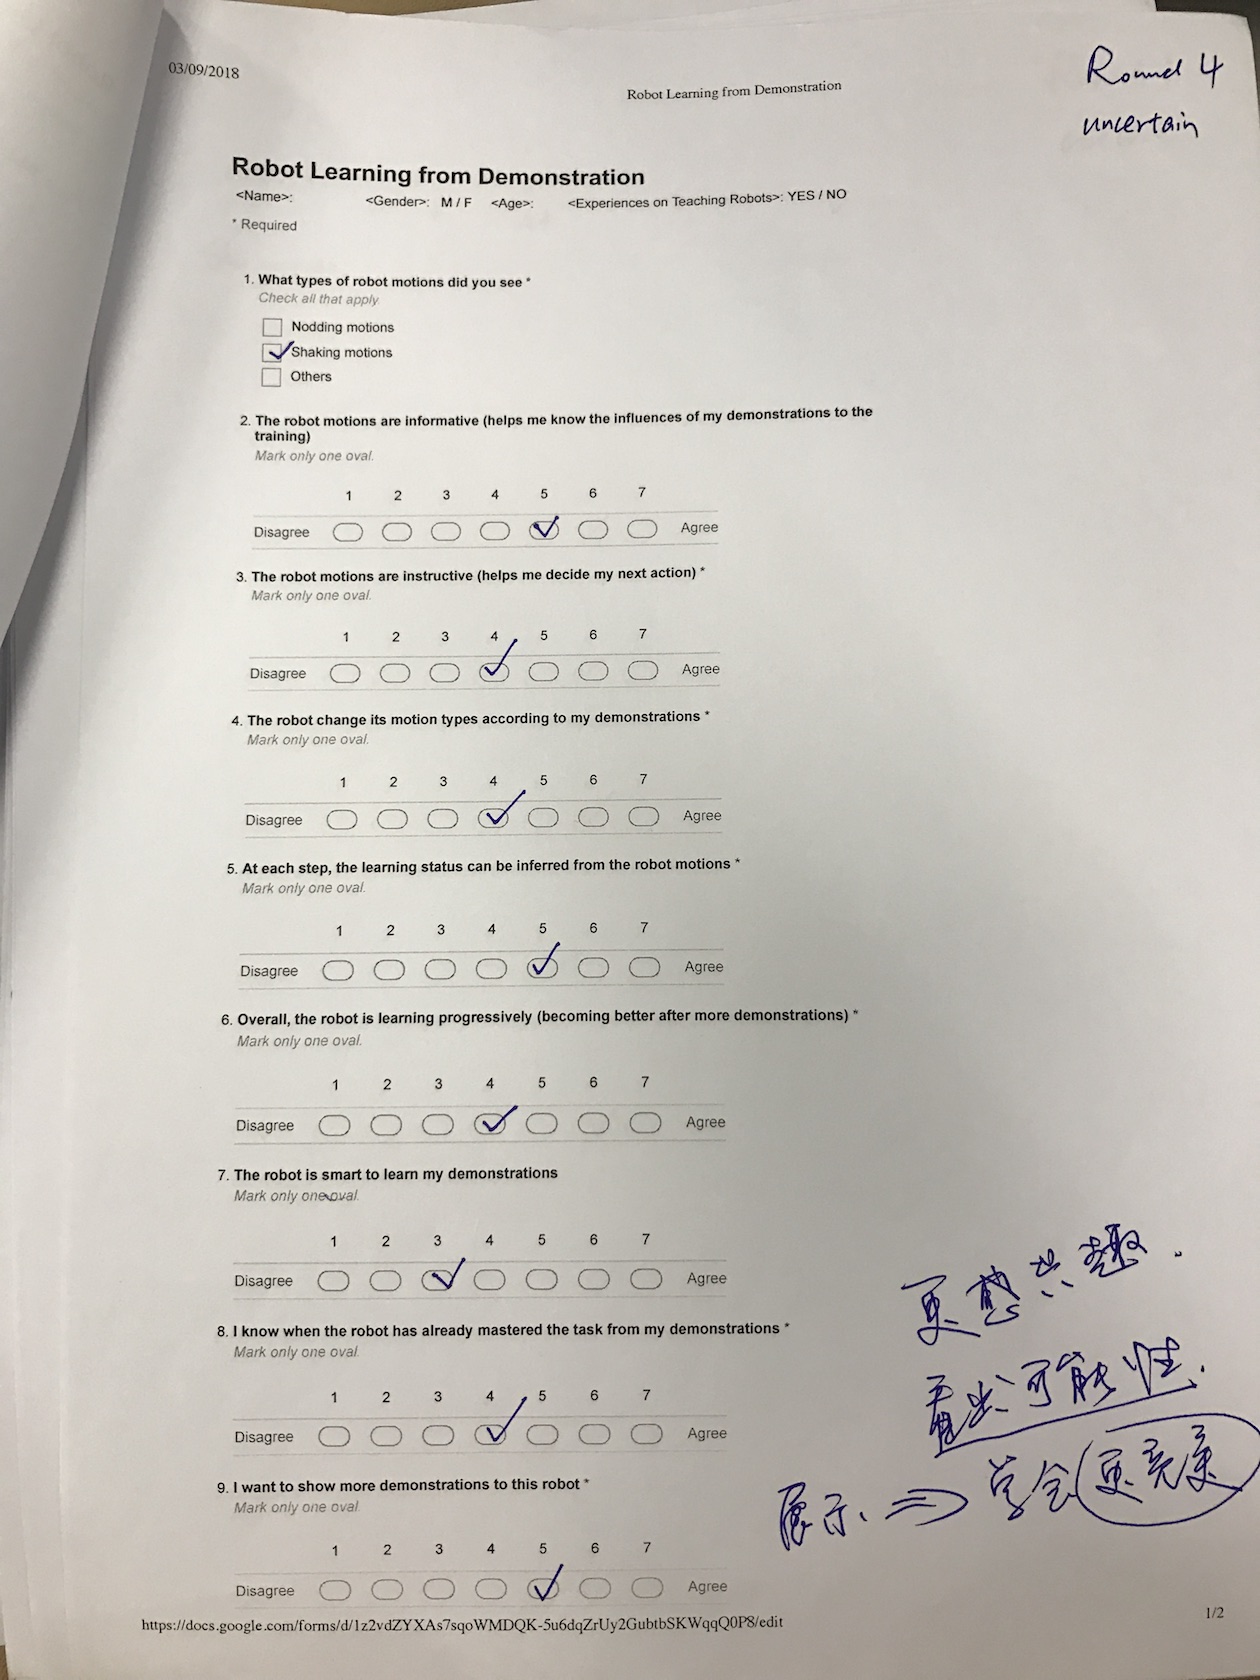 03/09/2018
Robot Learning from Demonstration
Round 4
uncertain
Robot Learning from Demonstration
<Name>: <Gender>: M / F <Age>: <Experiences on Teaching Robots>: YES / NO
* Required
1. What types of robot motions did you see *
Check all that apply.
Nodding motions
Shaking motions
Others
2. The robot motions are informative (helps me know the influences of my demonstrations to the
training)
Mark only one oval.
1 2 3 4 5 6 7
Disagree Agree
3. The robot motions are instructive (helps me decide my next action) *
Mark only one oval.
1 2 3 4 5 6 7
Disagree Agree
4. The robot change its motion types according to my demonstrations *
Mark only one oval.
1 2 3 4 5 6 7
Disagree Agree
5. At each step, the learning status can be inferred from the robot motions *
Mark only one oval.
1 2 3 4 5 6 7
Disagree Agree
6. Overall, the robot is learning progressively (becoming better after more demonstrations) *
Mark only one oval.
1 2 3 4 5 6 7
Disagree Agree
7. The robot is smart to learn my demonstrations
Mark only one oval.
1 2 3 4 5 6 7
Disagree Agree
更感兴趣.
8. I know when the robot has already mastered the task from my demonstrations *
Mark only one oval.
1 2 3 4 5 6 7
Disagree Agree
看出可能性.
9. I want to show more demonstrations to this robot *
Mark only one oval.
展示 ⇒ 学会更完美
1 2 3 4 5 6 7
Disagree Agree
https://docs.google.com/forms/d/1z2vdZYXAs7sqoWMDQK-5u6dqZrUy2GubtbSKWqqQ0P8/edit
1/2